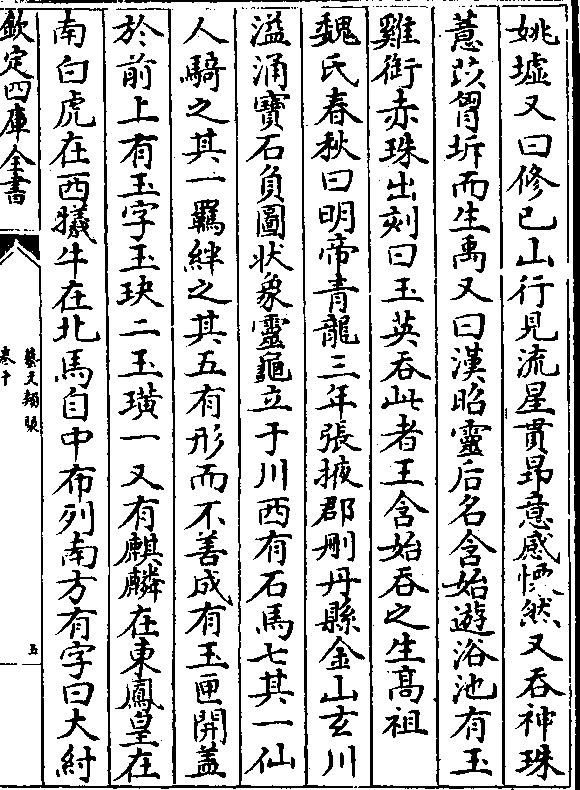 姚墟又曰修已山行見流星貫昴意感慄然又吞神珠
薏苡胷坼而生禹又曰漢昭靈后名含始遊浴池有玉
雞銜赤珠出刻曰玉英吞此者王含始吞之生髙祖
魏氏春秋曰明帝青龍三年張掖郡刪丹縣金山玄川
溢涌寶石負圖状象靈龜立于川西有石馬七其一仙
人騎之其一羈絆之其五有形而不善成有玉匣開盖
於前上有玉字玉玦二玉璜一又有麒麟在東鳳皇在
南白虎在西犧牛在北馬自中布列南方有字曰大討
欽定四庫全書
藝文類聚
卷十
五